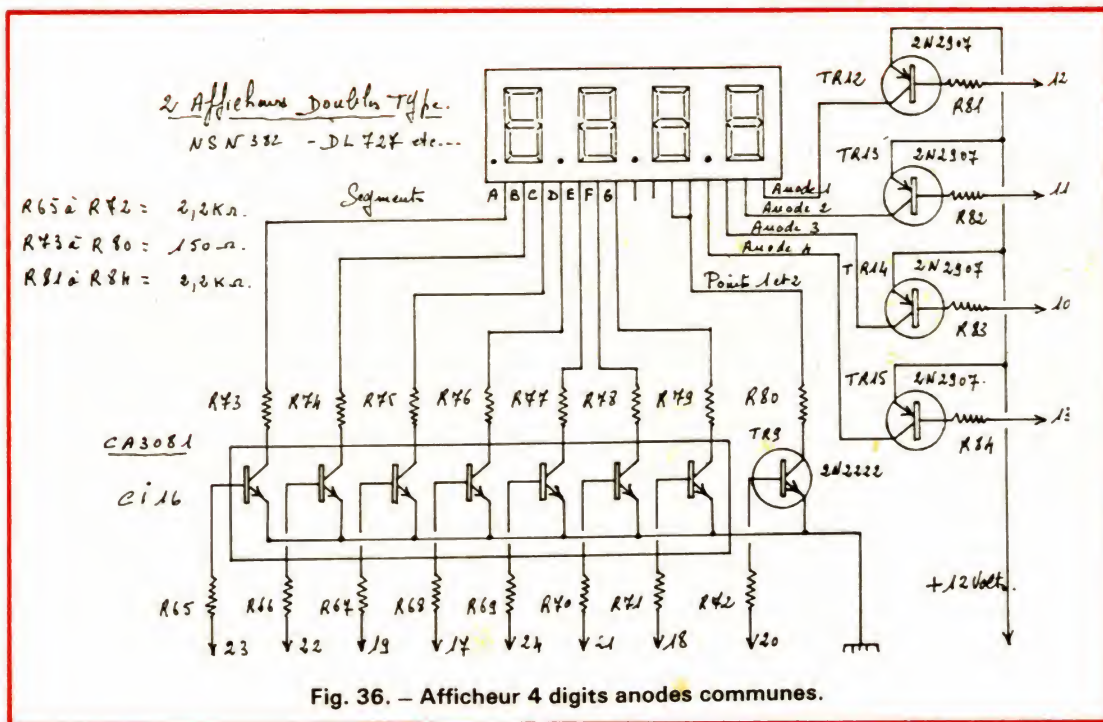 2 Afficheurs Doubles Type.
NSN 382 - DL 727 etc...
R65 à R72 = 2,2KΩ.
R73 à R80 = 150Ω.
R81 à R84 = 2,2KΩ.
Segments
A B C D E F G
Anode 1
Anode 2
Anode 3
Anode 4
Points 1 et 2
2N2907
TR12
R81
12
2N2907
TR13
R82
11
2N2907
TR14
R83
10
2N2907.
TR15
R84
R73 R74 R75 R76 R77 R78 R79 R80
CA3081
Ci 16
TR9
2N2222
R65 R66 R67 R68 R69 R70 R71 R72
23 22 19 17 24 21 18 20
+12Volts.
Fig. 36. – Afficheur 4 digits anodes communes.